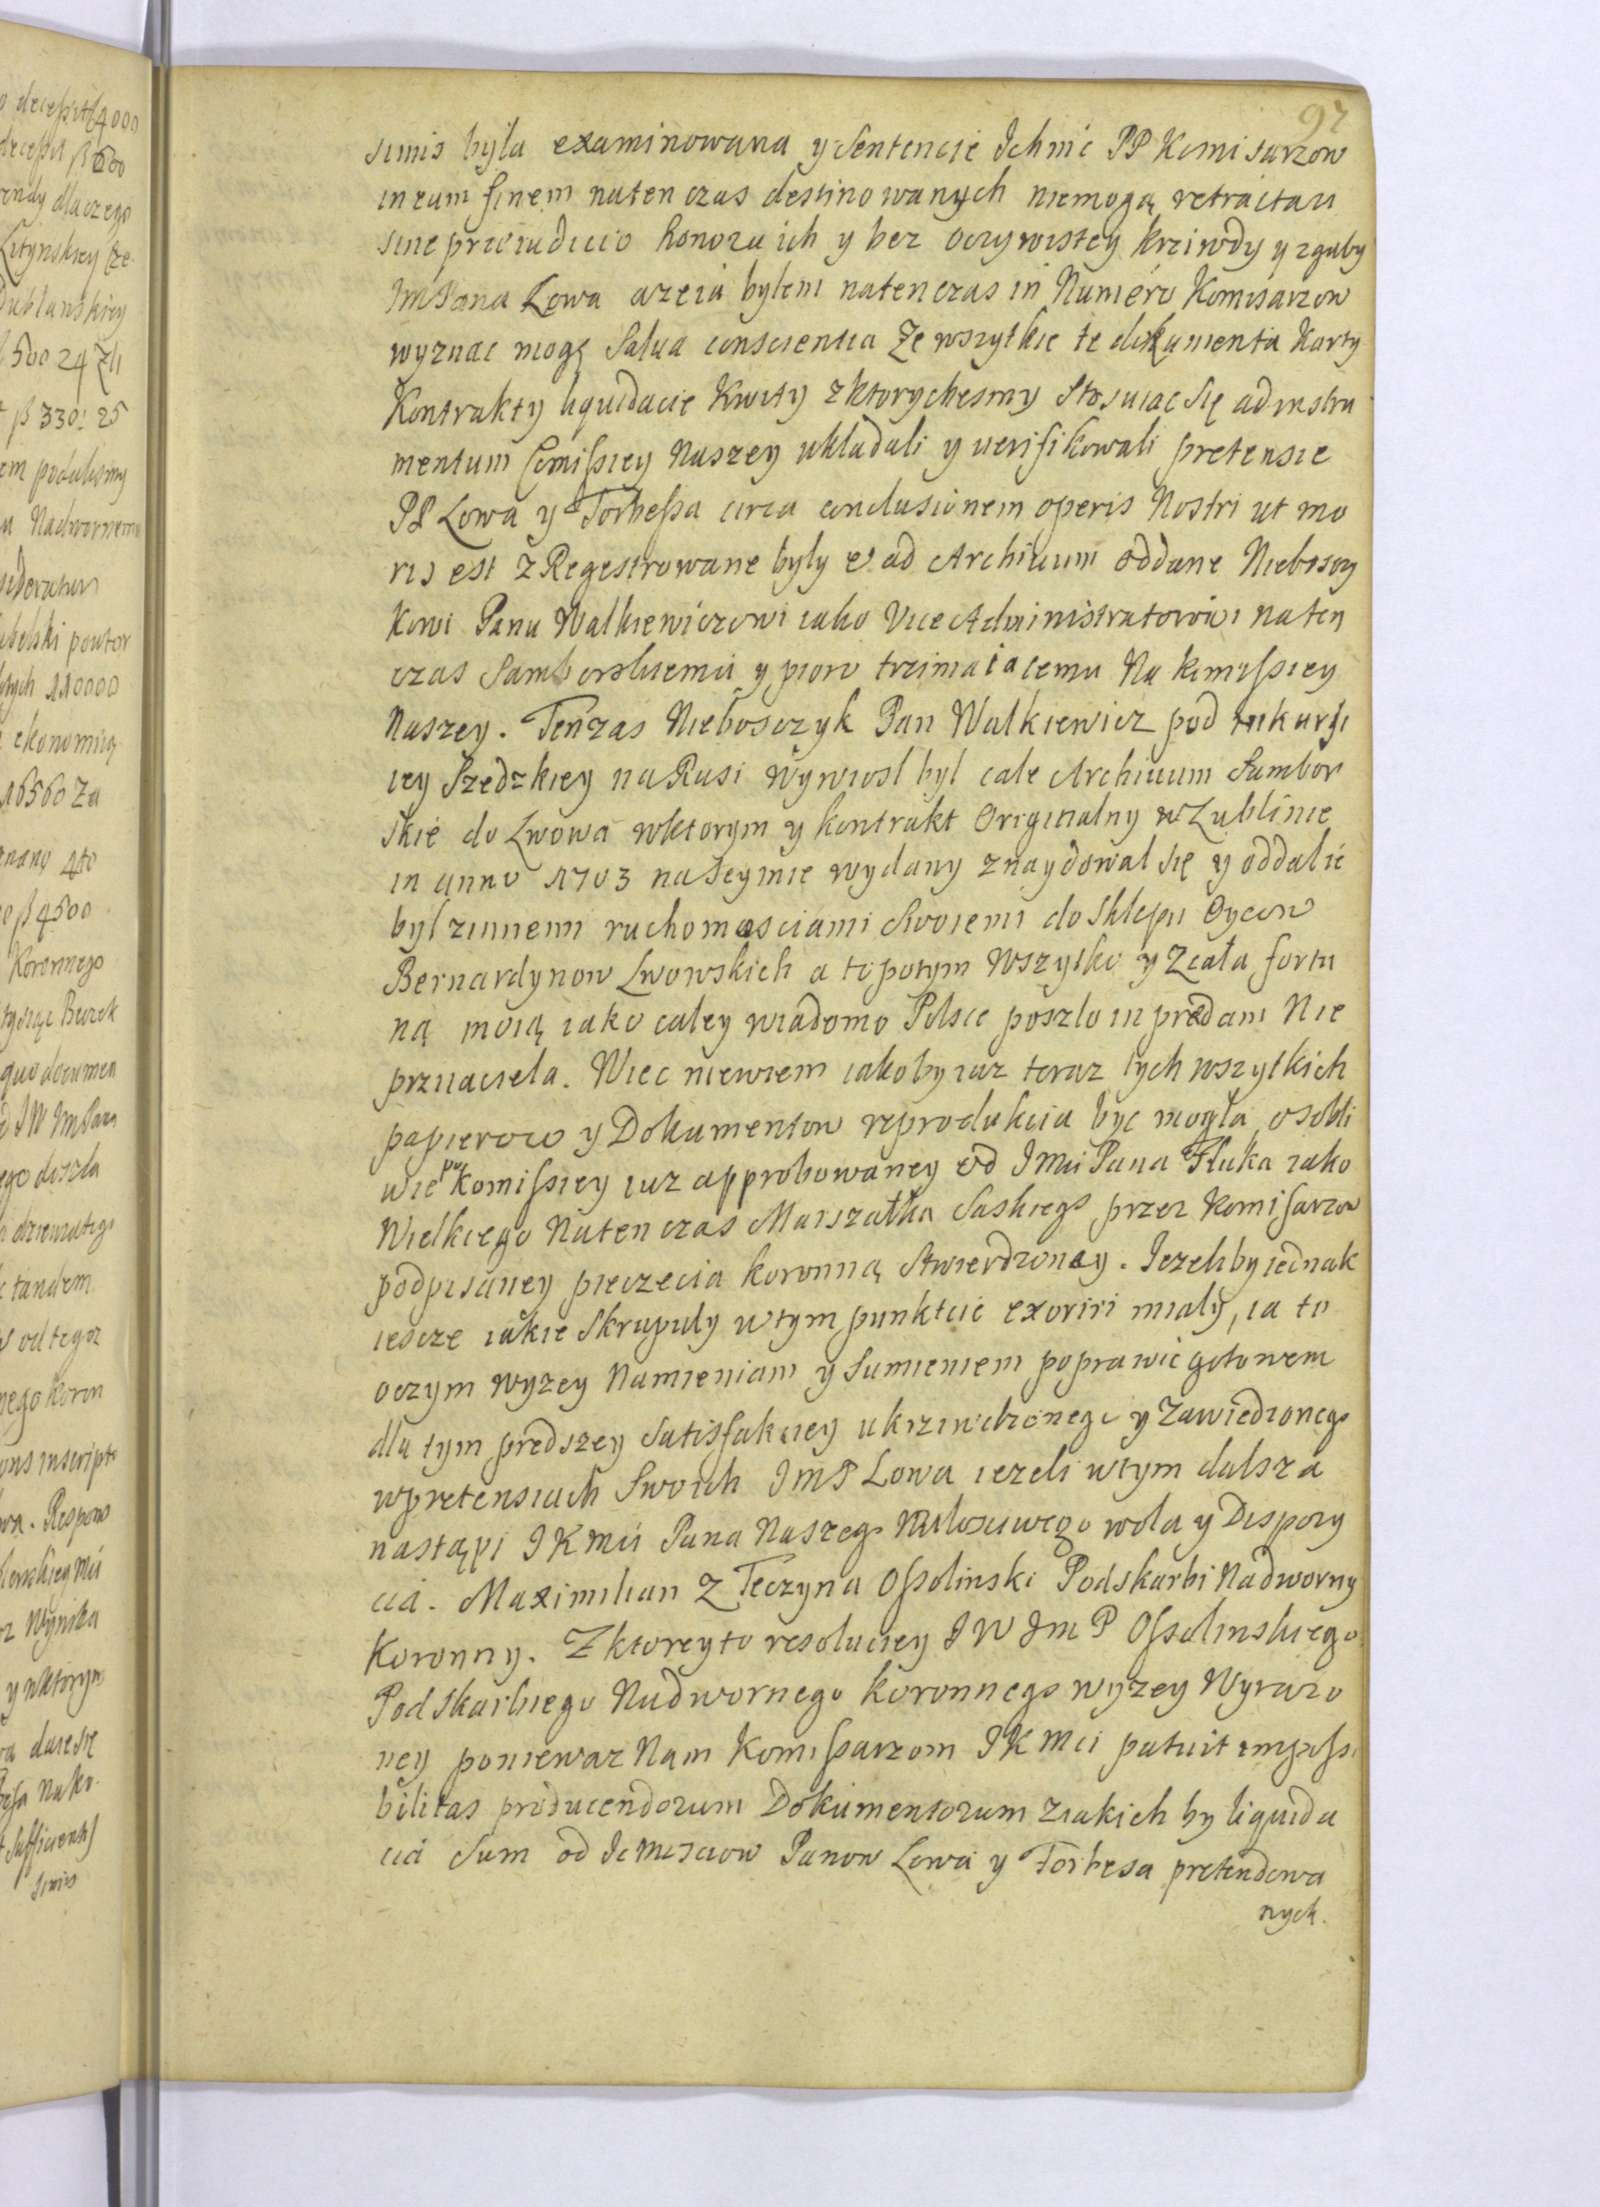 97
simis była examinowana y Sentencie Ichmć PP Komisarzow
in eum finem naten czas destinowanych niemogą retractari
sine preiudicio honoru ich y bez oczywistey krziwdy y zguby
ImPana Lowa a ze ia byłem natenczas in Numero Komisarzow
wyznac mogę Salva conscientia Ze wszytkie te dokumenta Karty
Kontrakty liquidacie Kwity z ktorychesmy Stosuiac Się ad instru
mentum Comissiey Naszey układali y verifikowali pretensie
PP Lowa y Forbessa circa conclusionem operis Nostri ut mo
ris est zRegestrowane były et ad Archivum oddane Niebosczy
kowi Panu Walkiewiczowi iako Vice Administratorowi naten
czas Samborskiemu y pioro trzimaiacemu Na komissiey
Naszey. Tenzas Niebosczyk Pan Walkiewicz pod inkursi
iey Szedzkiey na Rusi wywiosł był całe Archivum Sambor
skie do Lwowa wktorym y kontrakt Originalny w Lublinie
in anno 1703 na Seymie wydany znaydował się y oddał ie
był z innemi ruchomosciami Swoiemi do Sklepu Oycow
Bernardynow Lwowskich a to potym wszytko y Zcała fortu
ną moią iako całey wiadomo Polsce poszło in praedam Nie
prziiaciela. Wiec niewiem iakoby iuz teraz tych wszytkich
papierow y Dokumentow reprodukcia byc mogła osobli
wie po Komissiey iuz approbowaney od IMci Pana Fluka iako
Wielkiego Naten czas Marszałka Saskiego przez Komisarzow
podpisaney pieczecia koronną Stwierdzoney. Iezeliby iednak
iescze iakie Skrupuły w tym punktcie exoriri miały, ia to
oczym wyzey Namieniam y Sumieniem poprawić gotowem
dla tym prędszey Satisfakciey ukrziwdzonego y Zawiedzionego
w pretensiach Swoich IMP Lowa iezeli w tym dalsza
nastąpi IKMci Pana Naszego Miłosciwego wola y Dispozy
cia. Maximilian Z Teczyna Ossolinski Podskarbi Nadworny
Koronny. Z ktorey to resoluciey IW ImP Ossolinskiego
Podskarbiego Nadwornego koronnego wyzey Wyrazo
ney poniewaz Nam Komissarzom IKMci patuit impossi
bilitas producendorum Dokumentorum z iakich by liquida
cia Sum od IchMsciow Panow Lowa y Forbesa pretendowa
nych.